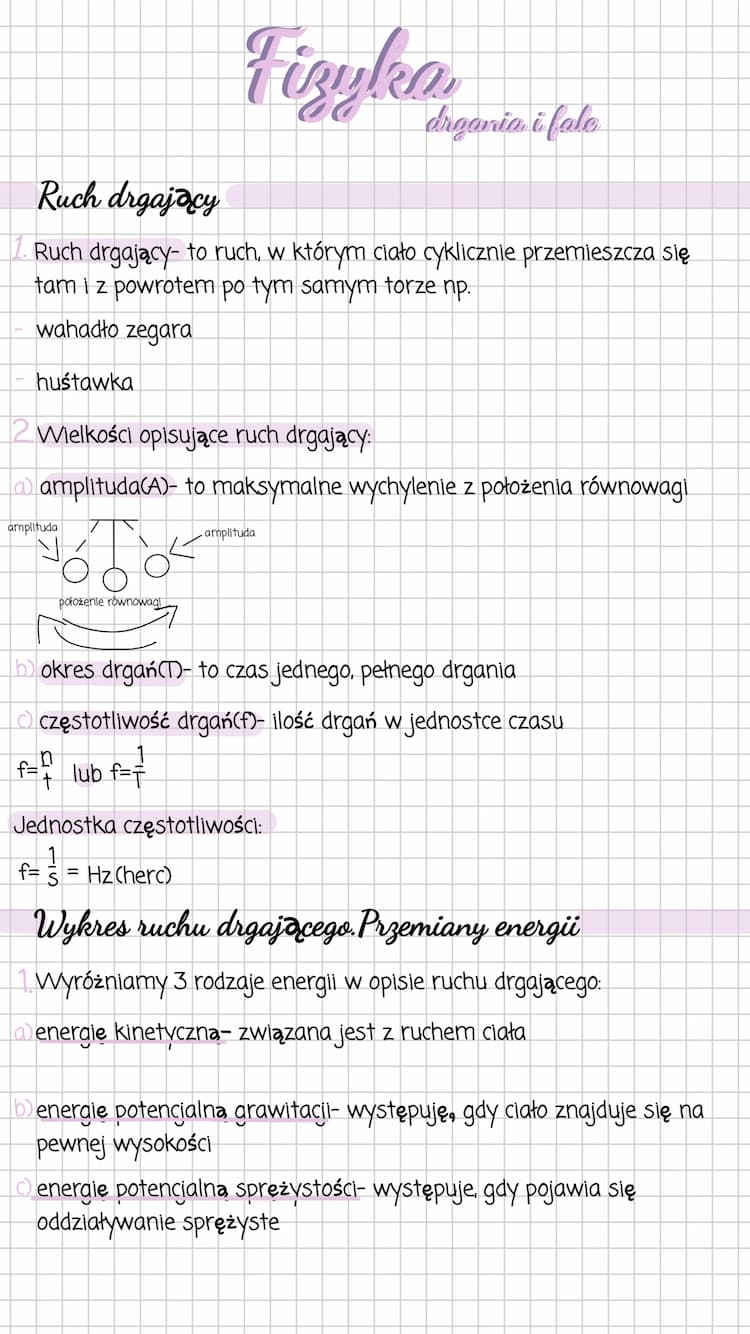 Fizyka
drgania i fale
Ruch drgający
1. Ruch drgający- to ruch, w którym ciało cyklicznie przemieszcza się
tam i z powrotem po tym samym torze np.
- wahadło zegara
- huśtawka
2. Wielkości opisujące ruch drgający:
a) amplituda(A)- to maksymalne wychylenie z położenia równowagi
amplituda
amplituda
położenie równowagi
b) okres drgań(T)- to czas jednego, pełnego drgania
c) częstotliwość drgań(f)- ilość drgań w jednostce czasu
f=n/t lub f=1/T
Jednostka częstotliwości:
f= 1/s = Hz(herc)
Wykres ruchu drgającego.Przemiany energii
1. Wyróżniamy 3 rodzaje energii w opisie ruchu drgającego:
a) energię kinetyczną- związana jest z ruchem ciała
b) energię potencjalną grawitacji- występuję, gdy ciało znajduje się na
pewnej wysokości
c) energię potencjalną sprężystości- występuje, gdy pojawia się
oddziaływanie sprężyste